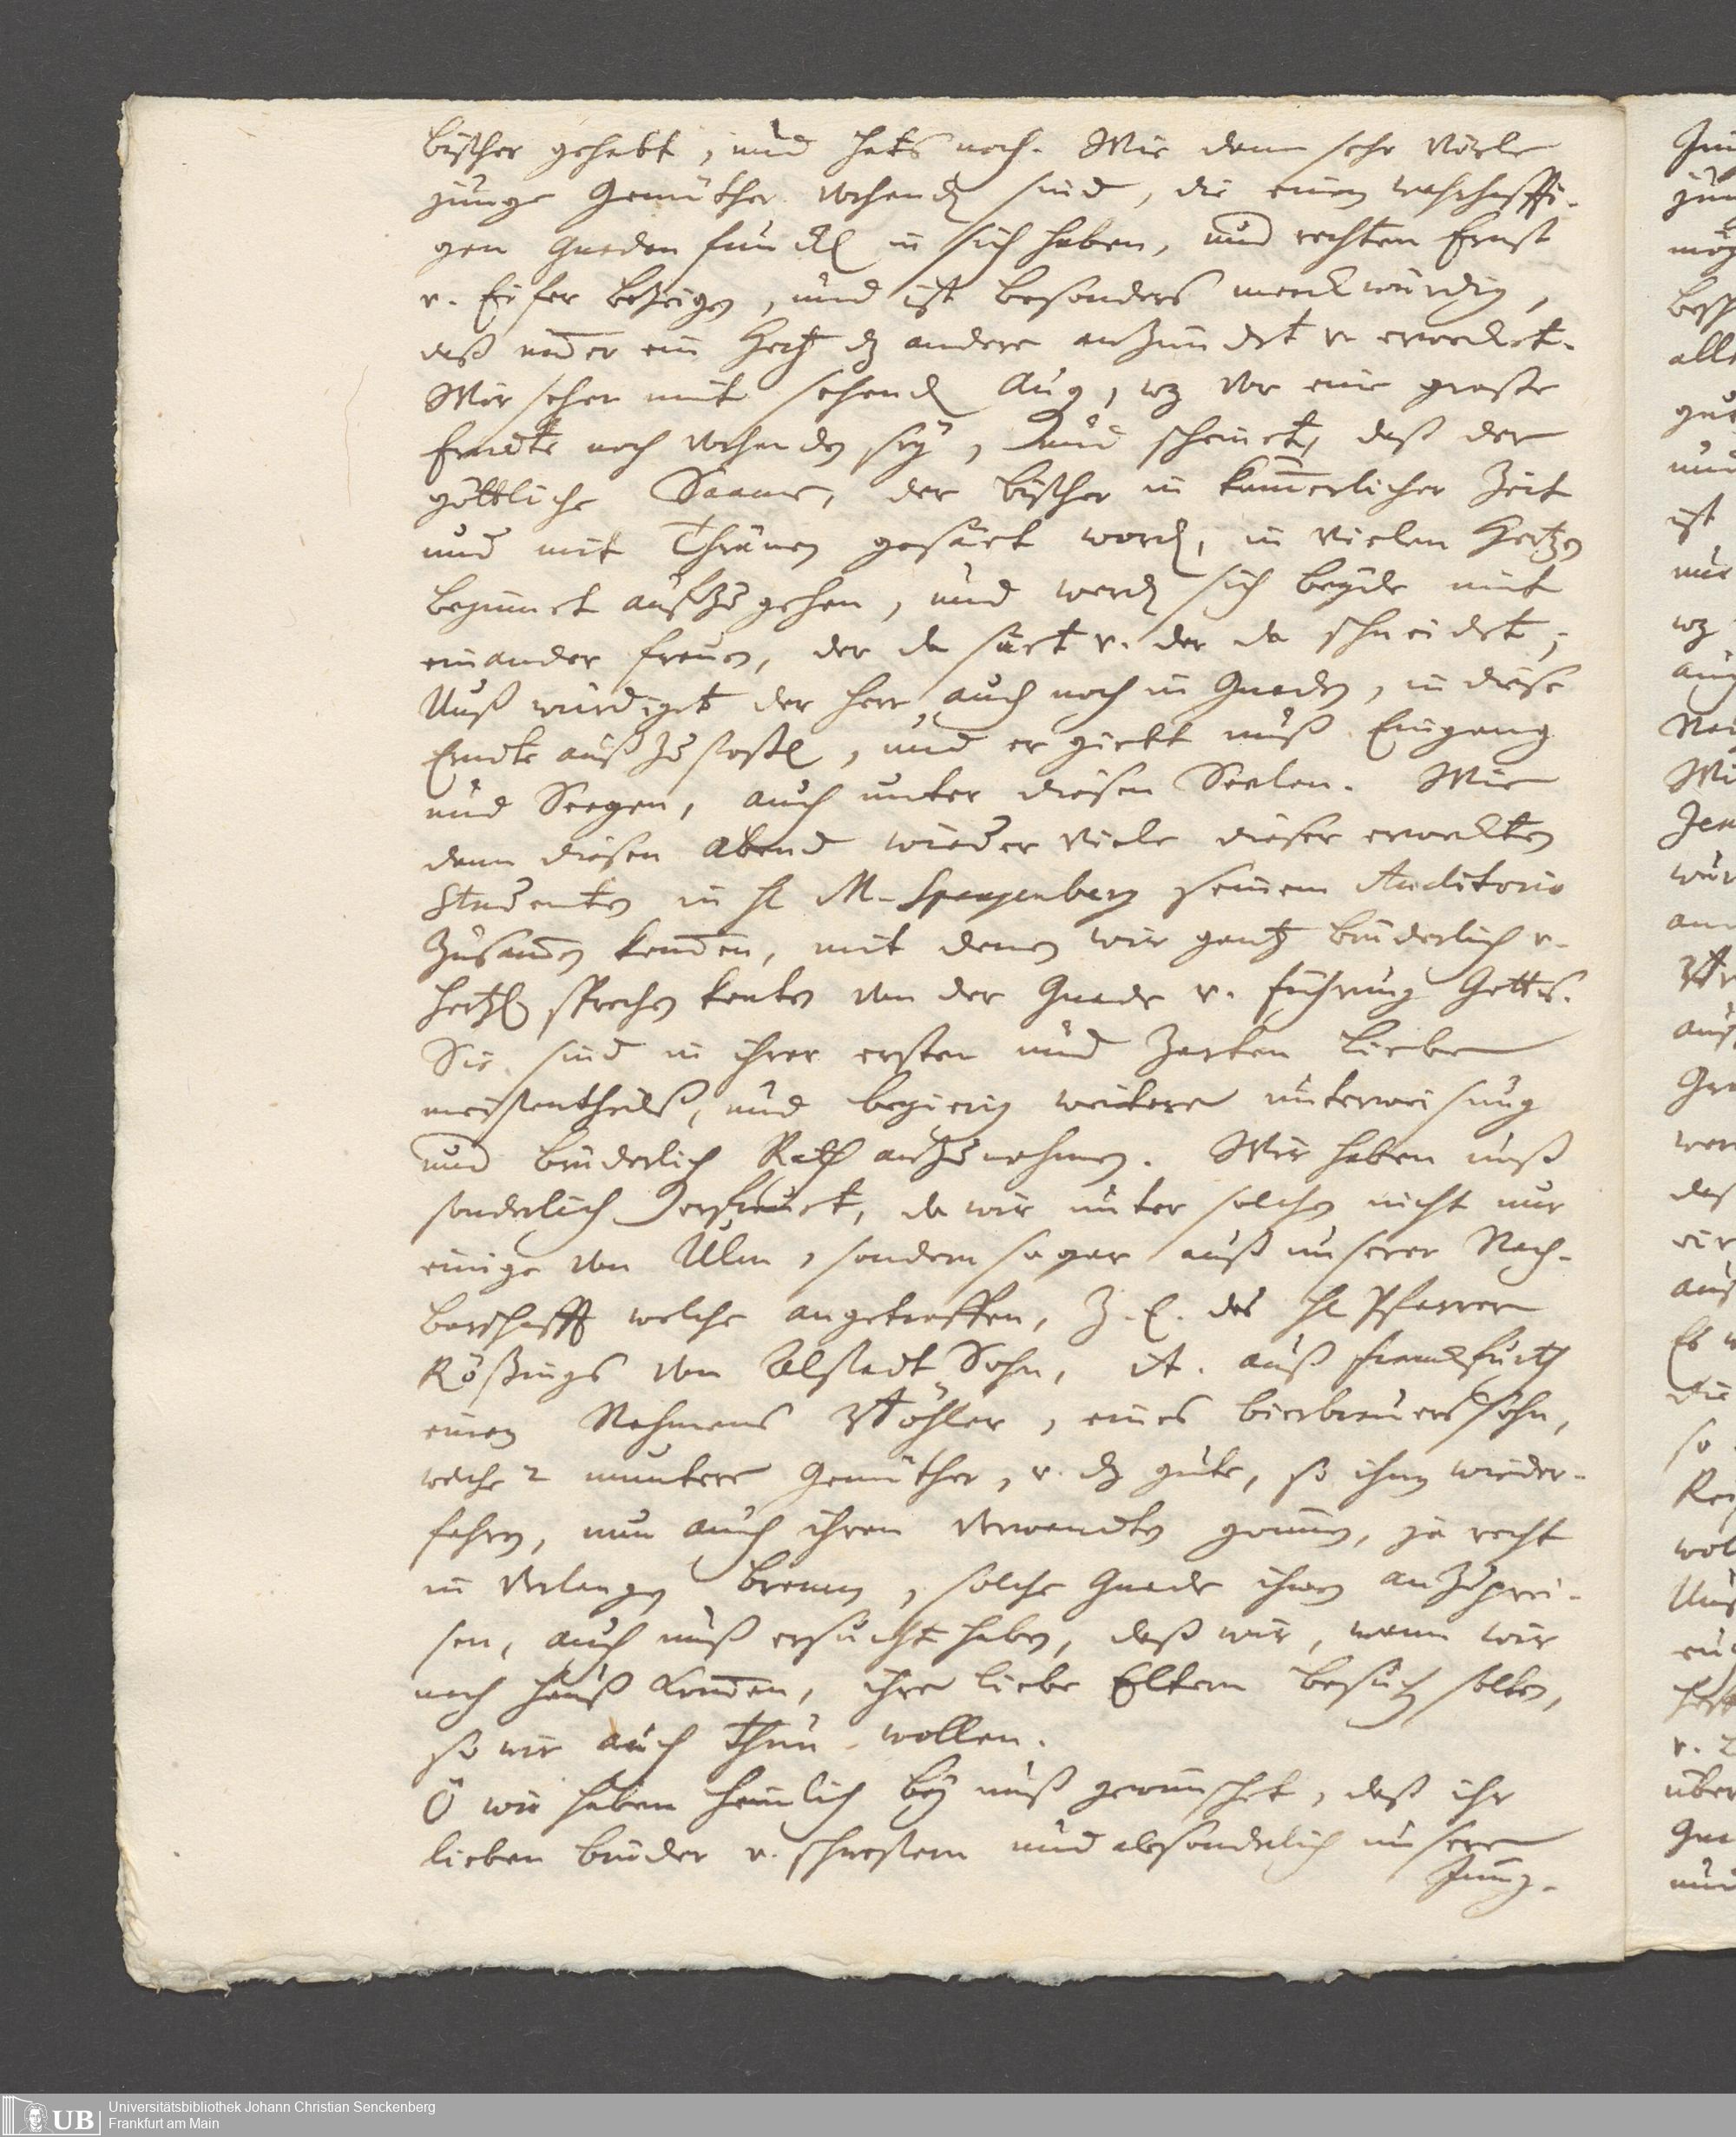 bißher gehabt, und hats noch. Wie dann sehr viele
junge Gemüther vorhanden sind, die einen wahrhaffti-
gen Gnaden funckl in sich haben, und rechten Ernst
v. Eifer bezeigen, und ist besonders merckwürdig,
daß  ein Hertz dz andere anzündet v. erwecket.
Wir sehen mit sehenden Aug, wz vor eine große
Erndte noch vorhanden sey, und scheinet, daß der
göttliche Saame, der bißher in kümerlicher Zeit
und mit Thränen gesäet worden, in vielen Hertzen
beginnet auffzugehen, und werden sich beyde mit
einander freuen, der da säet v. der da schneidet;
Unß würdiget der Herr auch noch in Gnaden, in diese
Erndte außzustoßen, und er giebt unß Eingang
und Seegen, auch unter diesen Seelen. Wie
dann diesen Abend wieder viele dieser erweckten
Studenten in H M. Spangenberg seinem Auditorio
zusamen kamen, mit denen wir gantz brüderlich v.
hertzl sprechen konten von der Gnade v. führung Gottes.
Sie sind in ihrer ersten und zarten Liebe
meistentheilß, und begierig weitere unterweisung
und brüderlich Rath anzunehmen. Wir haben unß
sonderlich erfreuet, da wir unter solchen nicht nur
einige von Ulm, sondern sogar auß unserer Nach-
barschafft welche angetroffen, Z. E. des H Pfarrer
Rößings von Alstadt Sohn, it. auß franckfurth
einen Nahmens Wöhler, eines bierbrauers sohn,
welche 2 muntere Gemüther, v. dz gute, so ihnen wieder-
fahren, nun auch ihren Verwandten gönnen, ja recht
in Verlangen brennen, solche Gnade ihnen anzuprei-
sen, auch unß ersucht haben, daß wir, wann wir
nach Hauß kämen, ihre liebe Eltern besuchen solten,
so wir auch thun wollen.
O wie haben heimlich bey unß gewünschet, daß ihr
lieben brüder v. schwestern und absonderlich unsere
Jung-
Universitätsbibliothek Johann Christian Senckenberg
Frankfurt am Main
UB